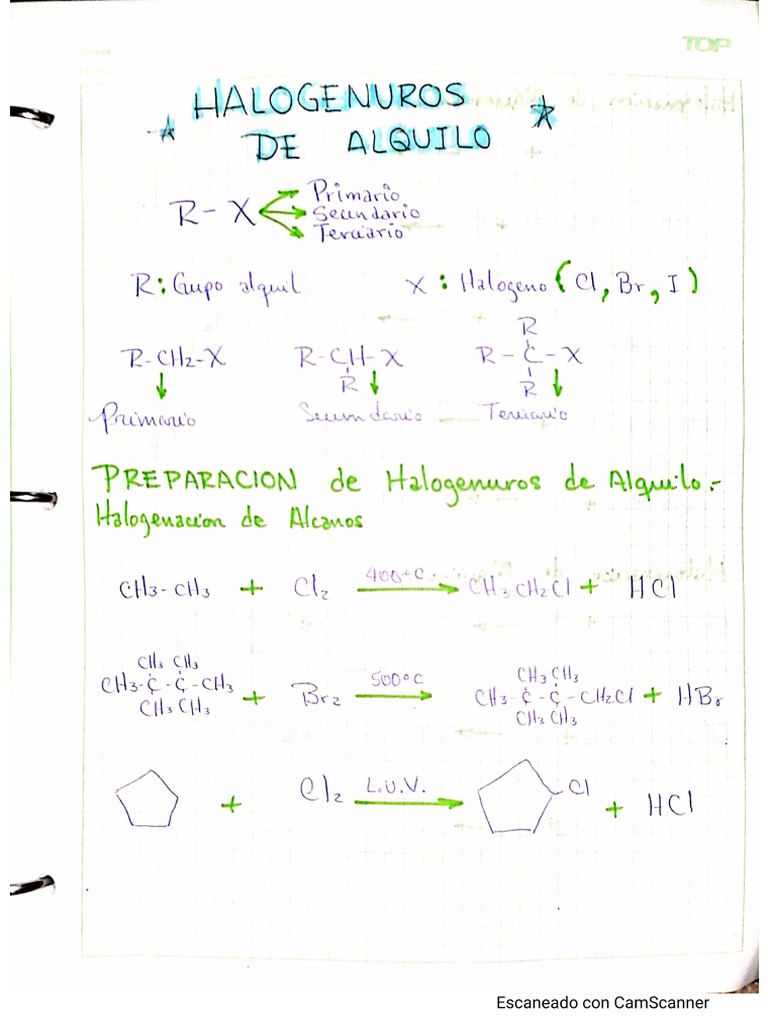 TOP
HALOGENUROS
DE ALQUILO
R-X Primario
Secundario
Terciario
R: Gupo alquil X: Halogeno (Cl, Br, I)
R
R-CH2-X R-CH-X R-C-X
R R
Primario Secundario Terciario
PREPARACION de Halogenuros de Alquilo.-
Halogenacion de Alcanos
CH3-CH3 + Cl2 400°C CH3CH2Cl + HCl
CH3 CH3 CH3 CH3
CH3-C-C-CH3 + Br2 500°C CH3-C-C-CH2Cl + HBr
CH3 CH3 CH3 CH3
+ Cl2 L.U.V. Cl + HCl
Escaneado con CamScanner